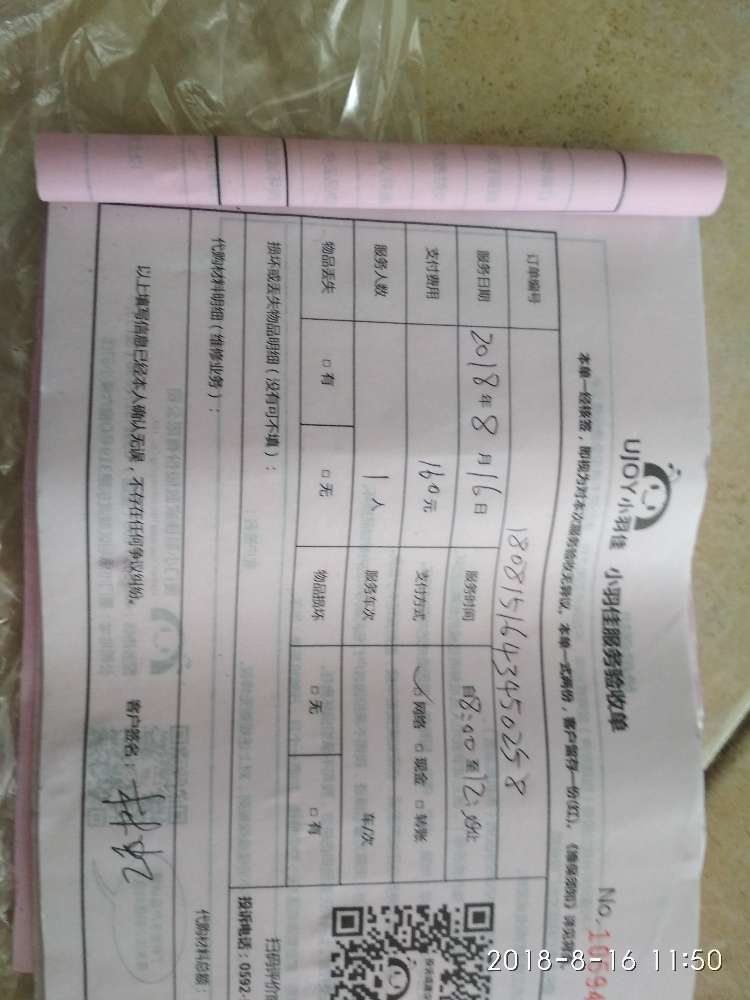 UJOY小羽佳 小羽佳服务验收单
No.10694
本单一经核签，即视为对本次服务验收无异议。本单一式两份，客户留存一份(红)。
订单编号 1808151643450258
服务日期 2018年8月16日 服务时间 自8:00至12:
支付费用 160元 支付方式 ☑网络 □现金 □转账
服务人数 1人 服务车次 车/次
物品丢失 □有 □无 物品损坏 □无 □有
损坏或丢失物品明细（没有可不填）：
扫码评价
投诉电话：0592-
代购材料明细（维修业务）：
代购材料总额：
以上填写信息已经本人确认无误，不存在任何争议纠纷。 客户签名：
2018-8-16 11:50